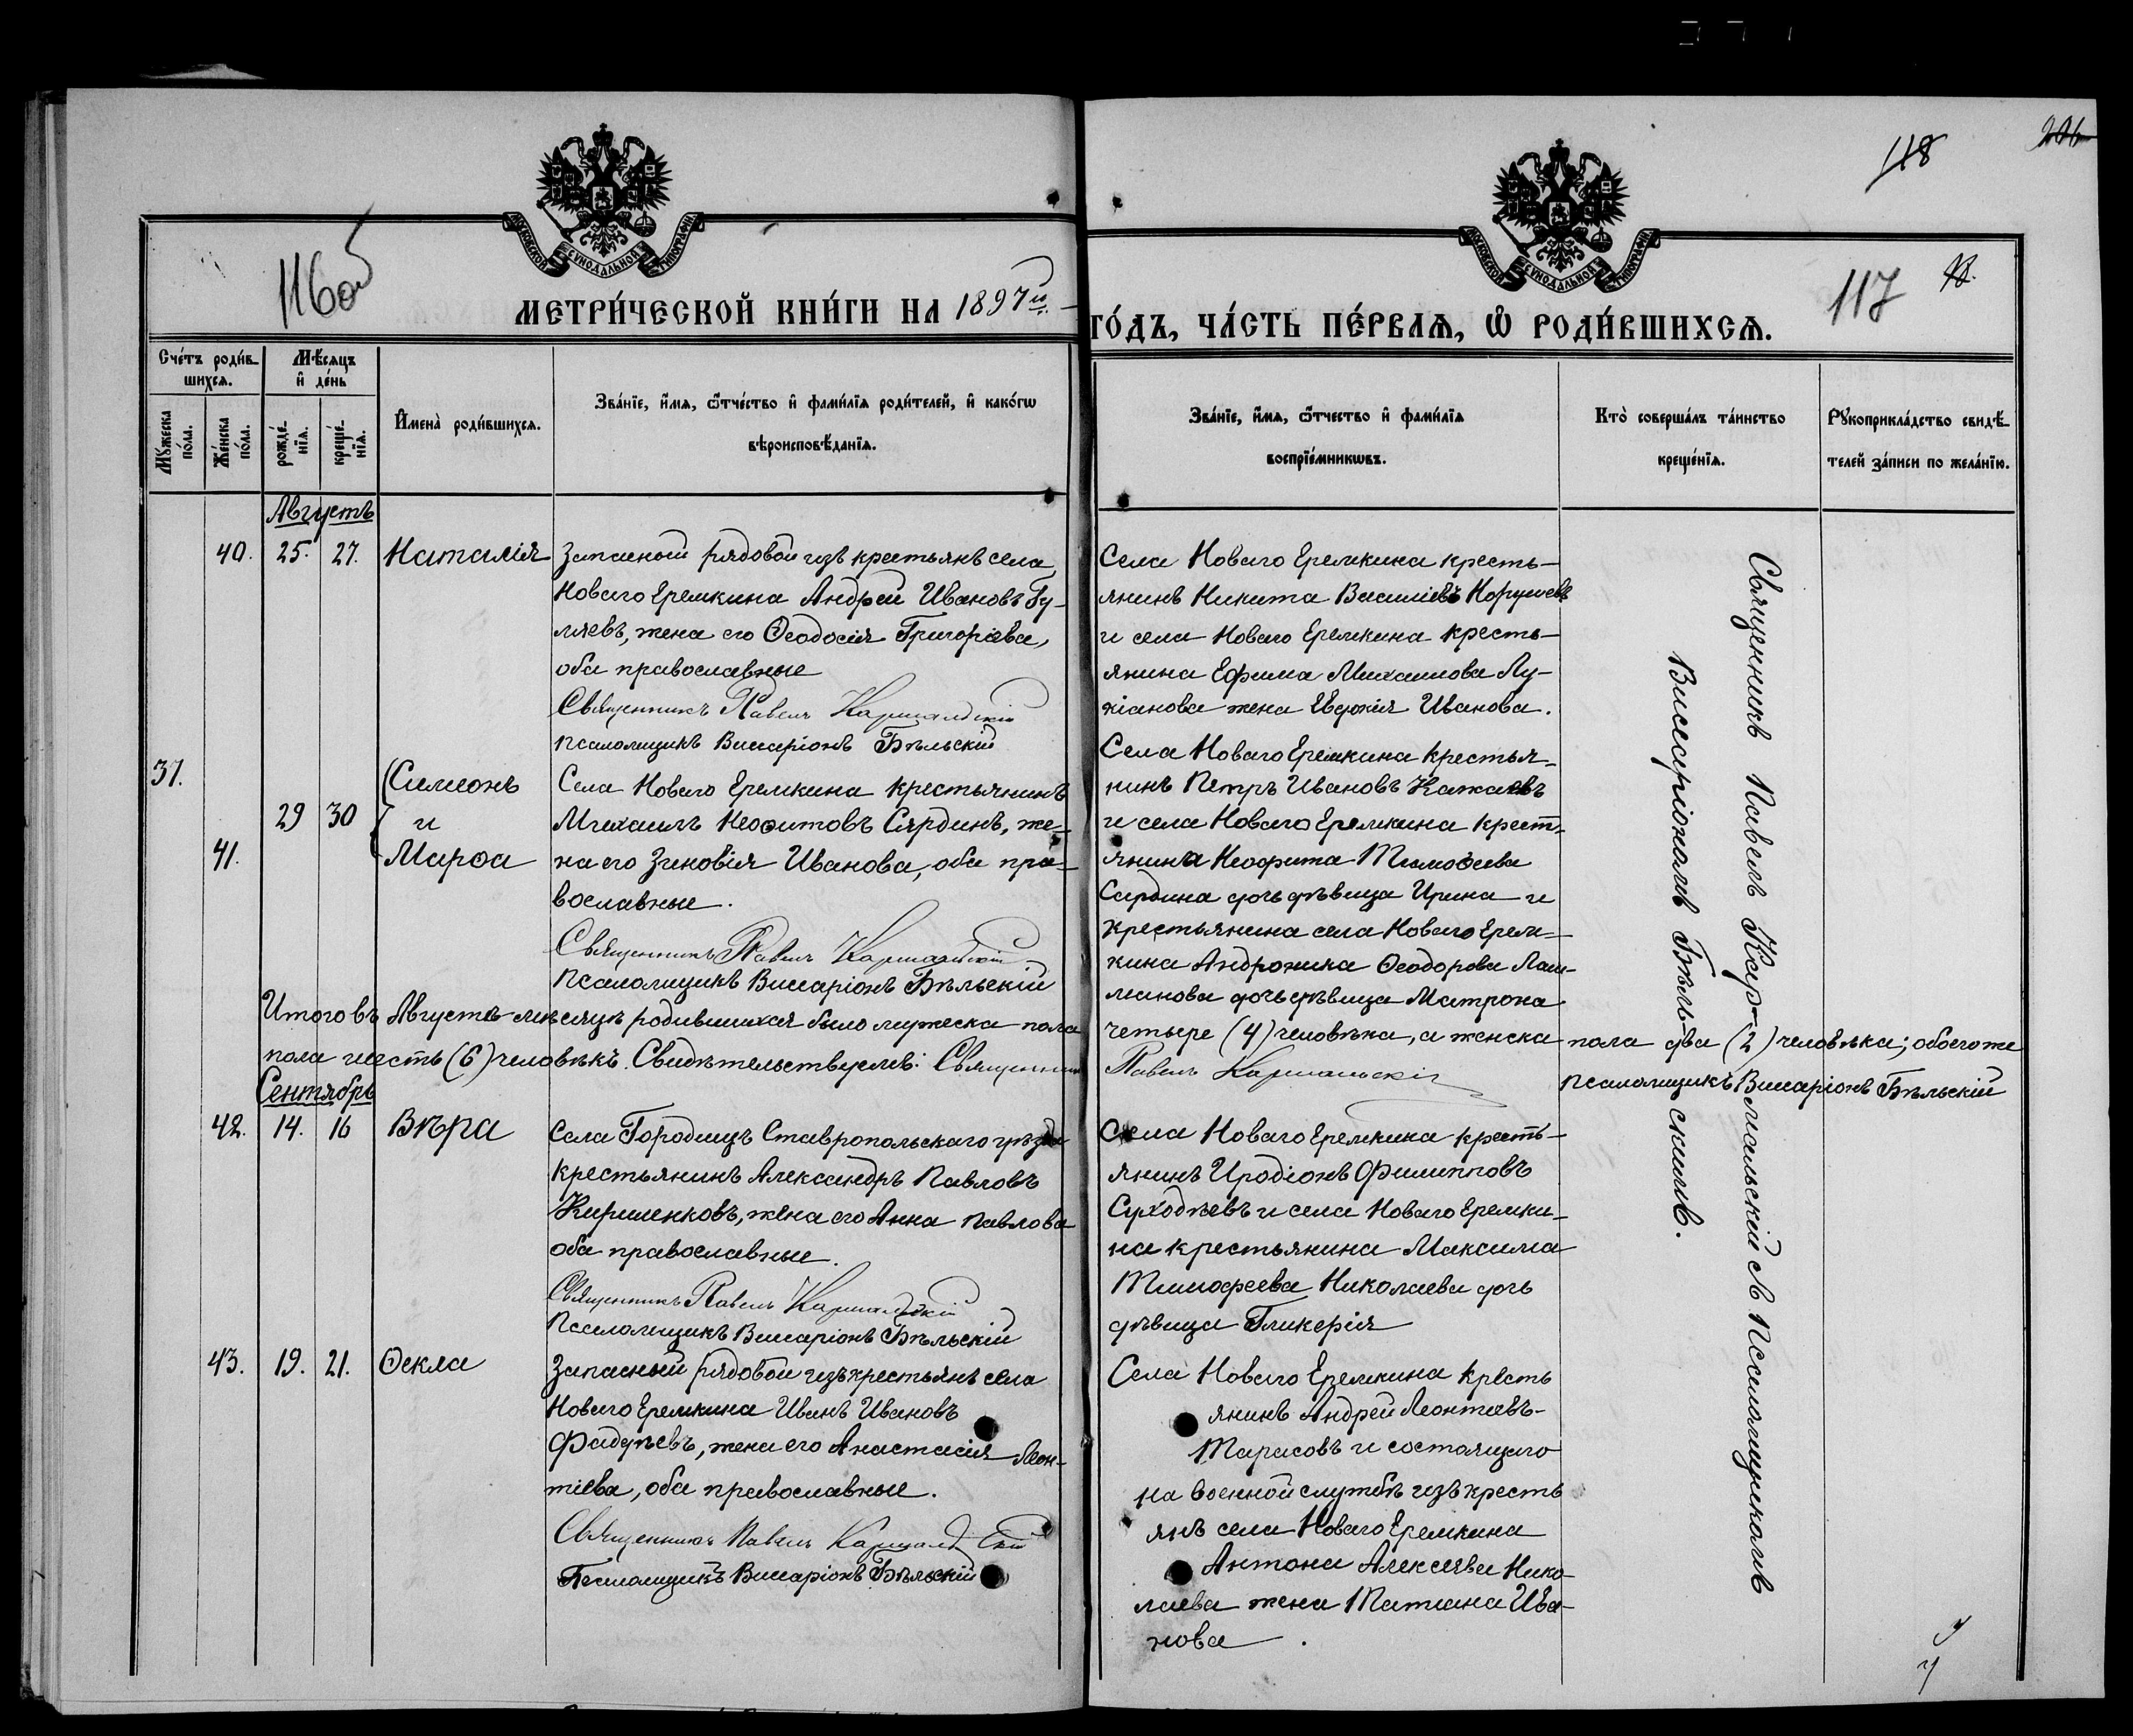 118
206
МОСКОВСКОЙ СѴНОДАЛЬНОЙ ТИПОГРАФІИ
МОСКОВСКОЙ СѴНОДАЛЬНОЙ ТИПОГРАФІИ
116об
117
МЕТРИ́ЧЕСКОЙ КНИ́ГИ НА 1897й
ГО́ДЪ, ЧА́СТЬ ПЕ́РВАѦ, Ѿ РОДИ́ВШИХСѦ.
Сче́тъ роди́в-
шихсѧ.
Мѣ́сяцъ
и҆ де́нь
Мꙋ́жеска
по́ла.
Же́нска
по́ла.
рожде́-
нїѧ.
креще́-
нїѧ.
И҆мена̀ роди́вшихсѧ.
Зва́нїе, и҆́мѧ, ѻ҆́тчество и҆ фами́лїѧ роди́телей, и҆ како́гѡ
вѣроисповѣ́данїѧ.
Зва́нїе, и҆́мѧ, ѻ҆́тчество и҆ фами́лїѧ
воспрїе́мникѡвъ.
Кто̀ соверша́лъ та́инство
креще́нїѧ.
Рꙋкоприкла́дство свидѣ́-
телей за́писи по жела́нїю.
Августъ
40. 25. 27. Наталія
Запасной рядовой изъ крестьянъ села
Новаго Еремкина Андрей Ивановъ Гу-
ляевъ, жена его Ѳеодосія Григоріева,
оба православные
Священникъ Павелъ Кармальскій
псаломщикъ Виссаріонъ Бѣльскій
Села Новаго Еремкина кресть-
янинъ Никита Василіевъ
и села Новаго Еремкина кресть-
янина Ефима Михаилова Лу-
кіанова жена Евдокія Иванова.
37.
41.
29 30
Симеонъ
и
Марѳа
Села Новаго Еремкина крестьянинъ
Михаилъ Неофитовъ Сярдинъ, же-
на его Зиновія Иванова, оба пра-
вославные.
Священникъ Павелъ Кармальскій
Псаломщикъ Виссаріонъ Бѣльскій
Села Новаго Еремкина крестья-
нинъ Петръ Ивановъ Кажаевъ
и села Новаго Еремкина крест-
янина Неофита Тимоѳеева
Сярдина дочь дѣвица Ирина и
крестьянина села Новаго Ерем-
кина Андроника Ѳеодорова Лаш-
манова дочь дѣвица Матрона
Итого въ Августѣ мѣсяцѣ родившихся было мужеска пола четыре (4) человѣка, а женска пола два (2) человѣка; обоего же
пола шесть (6) человѣкъ. Свидѣтельствуемъ: Священникъ Павелъ Кармальскій псаломщикъ Виссаріонъ Бѣльскій
Сентябрь
42. 14. 16 Вѣра
Села Городищъ Ставропольскаго уѣзда
крестьянинъ Александръ Павловъ
Кириленковъ, жена его Анна Павлова
оба православные.
Священникъ Павелъ Кармальскій
Псаломщикъ Виссаріонъ Бѣльскій
Села Новаго Еремкина кресть-
янинъ Иродіонъ Филипповъ
Суходѣевъ и села Новаго Еремки-
на крестьянина Максима
Тимофеева Николаева дочь
дѣвица Гликерія
43. 19. 21. Ѳекла
Запасный рядовой изъ крестьянъ села
Новаго Еремкина Иванъ Ивановъ
Фадѣевъ, жена его Анастасія Леон-
тіева, оба православные.
Священникъ Павелъ Кармальскій
Псаломщикъ Виссаріонъ Бѣльскій
Села Новаго Еремкина кресть
янинъ Андрей Леонтьевъ-
Тарасовъ и состоящаго
на военной службѣ изъ кресть
янъ села Новаго Еремкина
Антона Алексѣева Нико-
лаева жена Татіана Ива-
нова.
Священникъ Павелъ Кармальскій съ Псаломщикомъ
Виссаріономъ Бѣльскимъ.